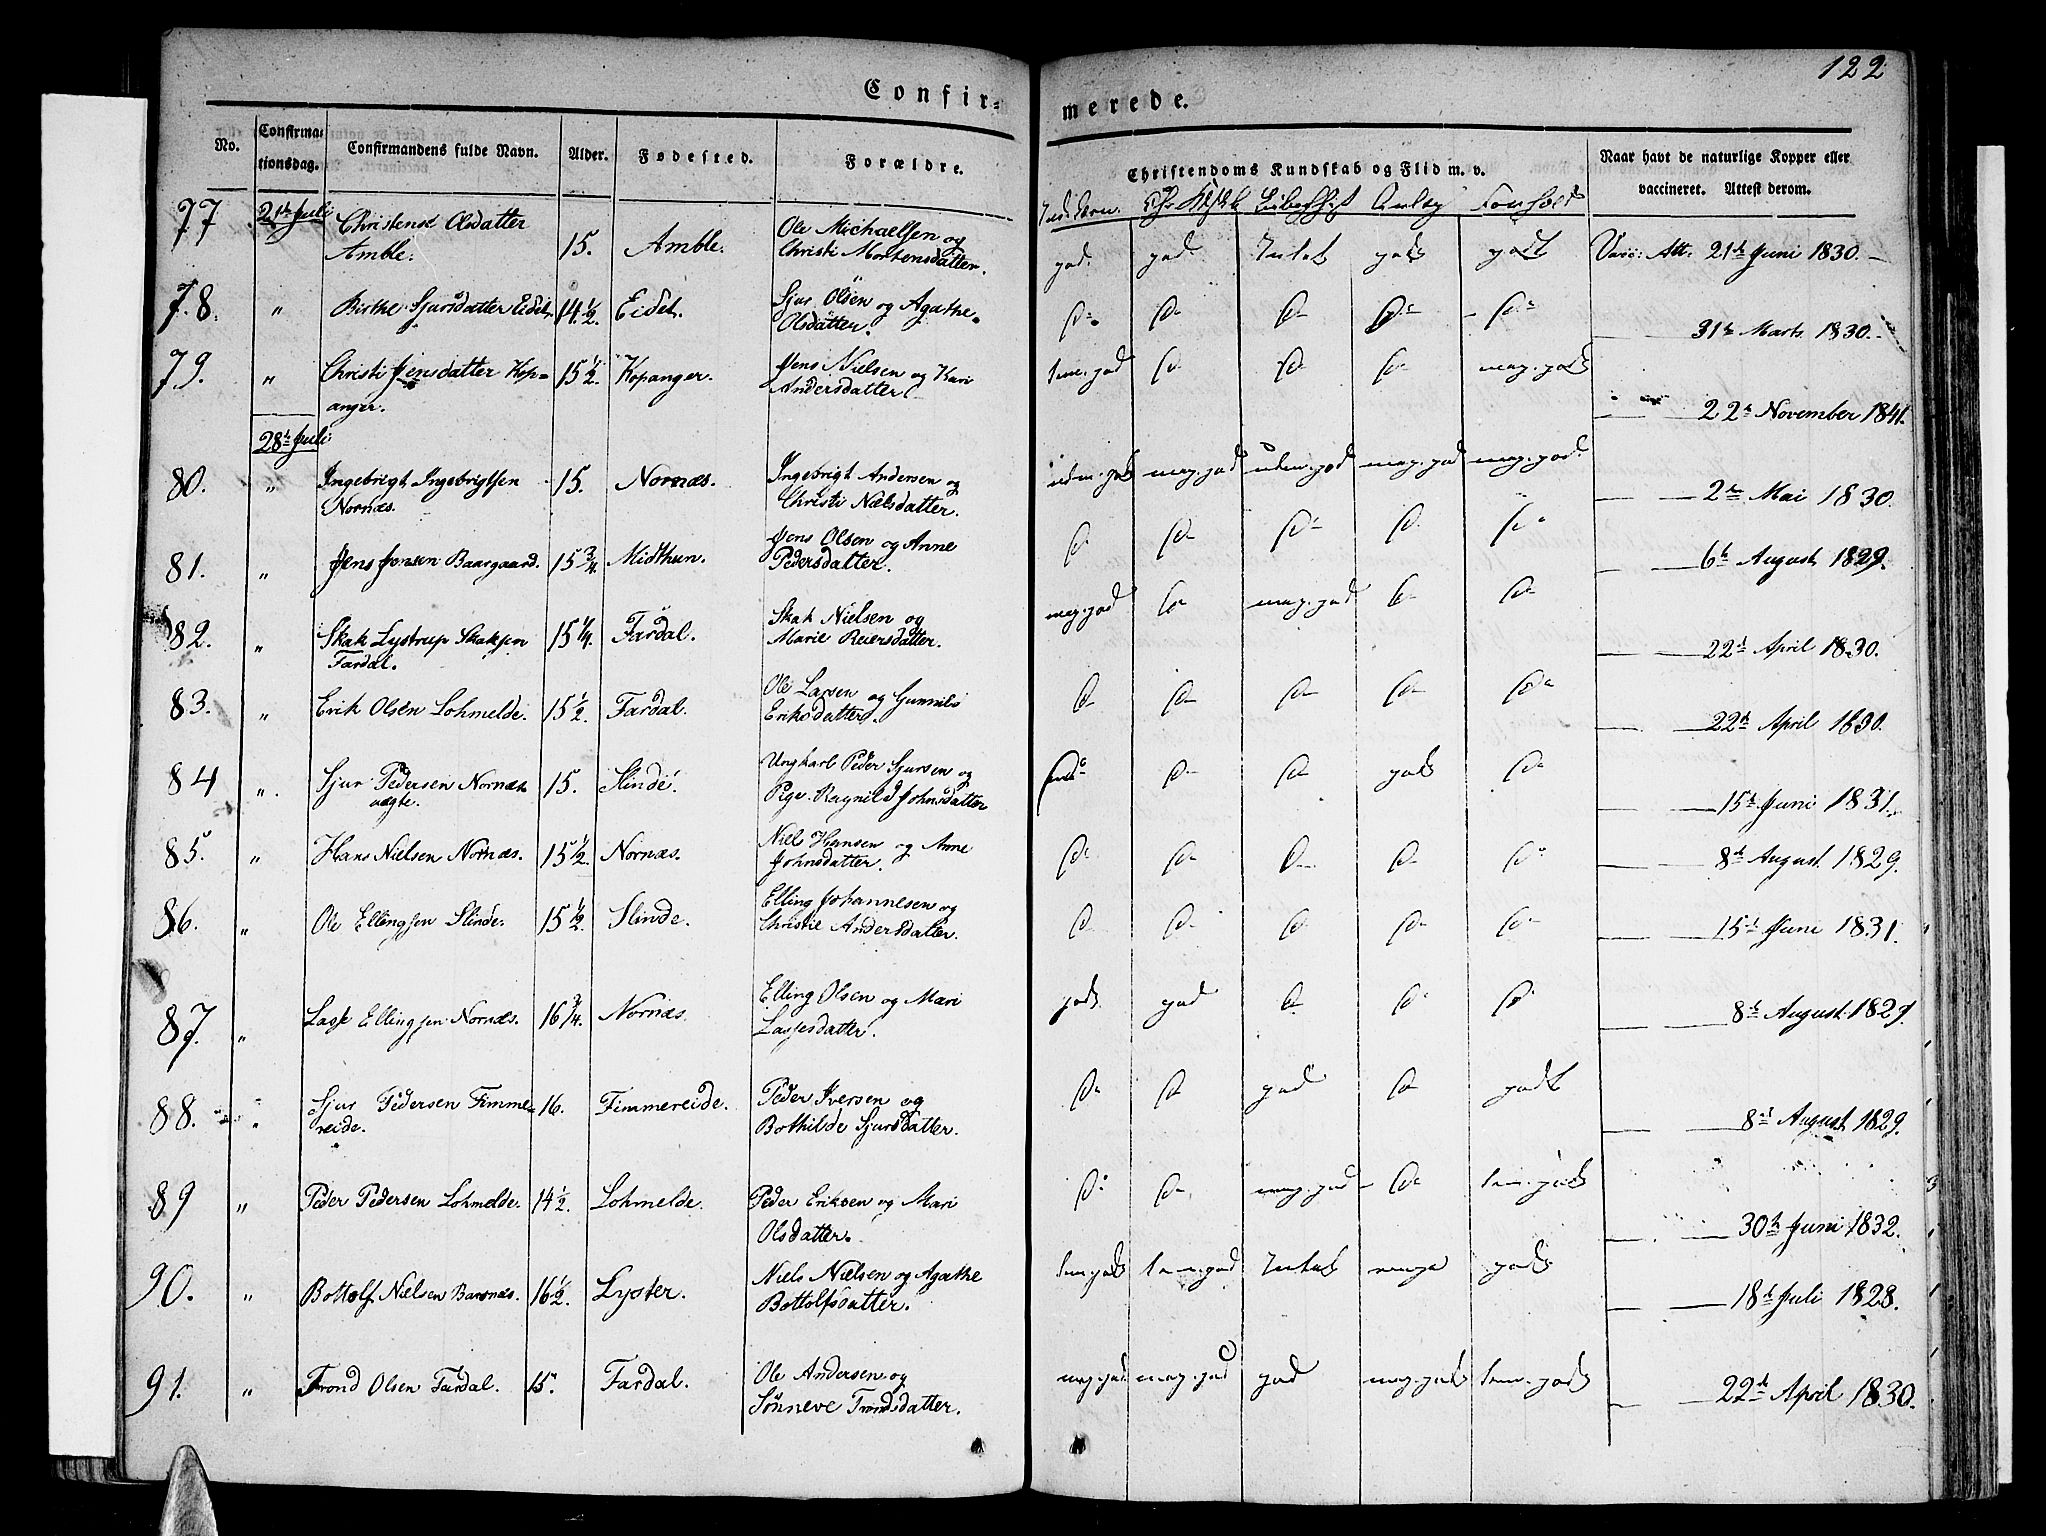 122
Confir=
merede.
No.
Confirma=
tionsdag.
Confirmandens fulde Navn.
Alder.
Fødested.
Forældre.
Christendoms Kundskab og Flid m. v.
Naar havt de naturlige Kopper eller
vaccineret. Attest derom.
77 21de Juli Christense Olsdatter
Amble. 15. Amble. Ole Michaelsen og
Christi Mortensdatter. god. god godt Vacc: Att: 21de Juni 1830.
78. " Birthe Sjursdatter Eidet. 14 1/2. Eidet. Sjur Olsen og Agathe
Olsdatter. 31te Marts 1830.
79. " Christi Jensdatter Kop=
anger. 15 1/2. Kopanger. Jens Nielsen og Kari
Andersdatter tem. god meg. godt 22de November 1841.
28de Juli
80. " Ingebrigt Ingebrigtsen
Nornæs. 15. Nornæs. Ingebrigt Andersen og
Christi Nielsdatter. udm. god meg. god udm. god meg. god meg. god 2den Mai 1830.
81. " Jens Jensen Baargaard. 15 3/4. Midthun. Jens Olsen og Anne
Pedersdatter. 6te August 1829.
82. " Skak Lystrup Skaksen
Fardal. 15 1/4. Fardal. Skak Nielsen og
Marie Reiersdatter. meg. god meg. god 22de April 1830.
83. " Erik Olsen Lohmelde. 15 1/2. Fardal. Ole Larsen og Gunnild
Eriksdatter. 22de April 1830.
84 " Sjur Pedersen Nornæs
15. Slinde. Ungkarl Peder Sjursen og
Pige Ragnild Johnsdatter godt 15de Juni 1831.
85. " Hans Nielsen Nornæs. 15 1/2. Nornæs. Niels Hansen og Anne
Johnsdatter. 8de August 1829.
86. " Ole Ellingsen Slinde. 15 1/2. Slinde. Elling Johannesen og
Christie Andersdatter. 15de Juni 1831.
87. " Lasse Ellingsen Nornæs. 16 3/4. Nornæs Elling Olsen og Mari
Lassesdatter. god. god 8de August 1829.
88. " Sjur Pedersen Fimme=
reide. 16. Fimmereide. Peder Iversen og
Bothilde Sjursdatter. god godt 8de August 1829.
89 " Peder Pedersen Lohmelde. 14 1/2. Lohmelde. Peder Eriksen og Mari
Olsdatter. meg. god tem. godt 30te Juni 1832.
90. " Bottolf Nielsen Barsnæs. 16 1/2. Lyster. Niels Nielsen og Agathe
Bottolfsdatter. tem. god tem. god godt 18de Juli 1828.
91. " Trond Olsen Fardal. 15. Fardal. Ole Andersen og
Sönneve Trondsdatter. meg. god meg. god god meg. god tem. godt 22de April 1830.